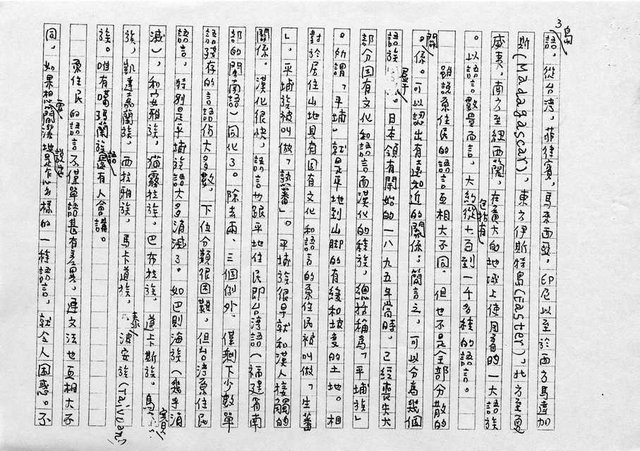 島
語，從台湾，菲律賓，馬來西亞，印尼以至於西方馬達加
斯(Madagascar)，東方伊斯特島(Easter)，北方至夏
威夷，南方至紐西蘭，在廣大的地域上使用着的一大語族
。以語言數量而言，大約從七百到一千多種的語言。
雖說原住民的語言互相大不同，但也不是全部分散的
関係。可以認出有遠近的関係；簡言之，可以分為幾個
語族。日本領有開始的一八九五年當時，已經喪失大
部分固有文化和語言而漢化的種族，總括稱為「平埔族」
。所謂「平埔」就是平地到山脚的有緩和坡度的土地。相
對於居住山地具有固有文化和語言的原住民被叫做「生蕃
」，平埔族被叫做「熟蕃」。平埔族很早就和漢人接觸的
関係，漢化很快，語言也跟平地住民即台湾語（福建省南
部的閩南語）同化了。除去兩、三個例外，僅剩下少數單
語殘存的語言佔大多數，下位分類很困難，但台湾原住民
語言，特別是平埔族語大多消滅了。如巴則海族（幾乎消
滅），和安雅族，貓霧拺族，巴布拉族，道卡斯族，
族，凱達格蘭族，西拉雅族，馬卡道族，(Taivoan)
族。唯有噶瑪蘭族語還有人會講。
原住民的語言不僅單語甚有差異，連文法也互相大不
同，如果想要簡潔地說是怎麼樣的一種語言，就令人困惑。不